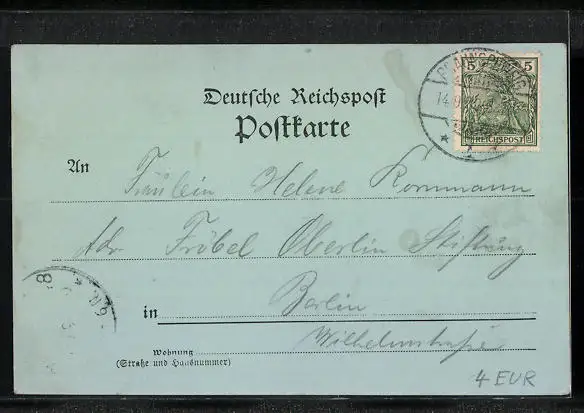 Deutsche Reichspost
Postkarte
5 5
REICHSPOST
BRAUNSCHWEIG
14.9.
An Fräulein Helene Kornmann
Adr. Fröbel Oberlin Stiftung
in Berlin
Wilhelmstraße
Wohnung
(Straße und Hausnummer)
8
4 EUR